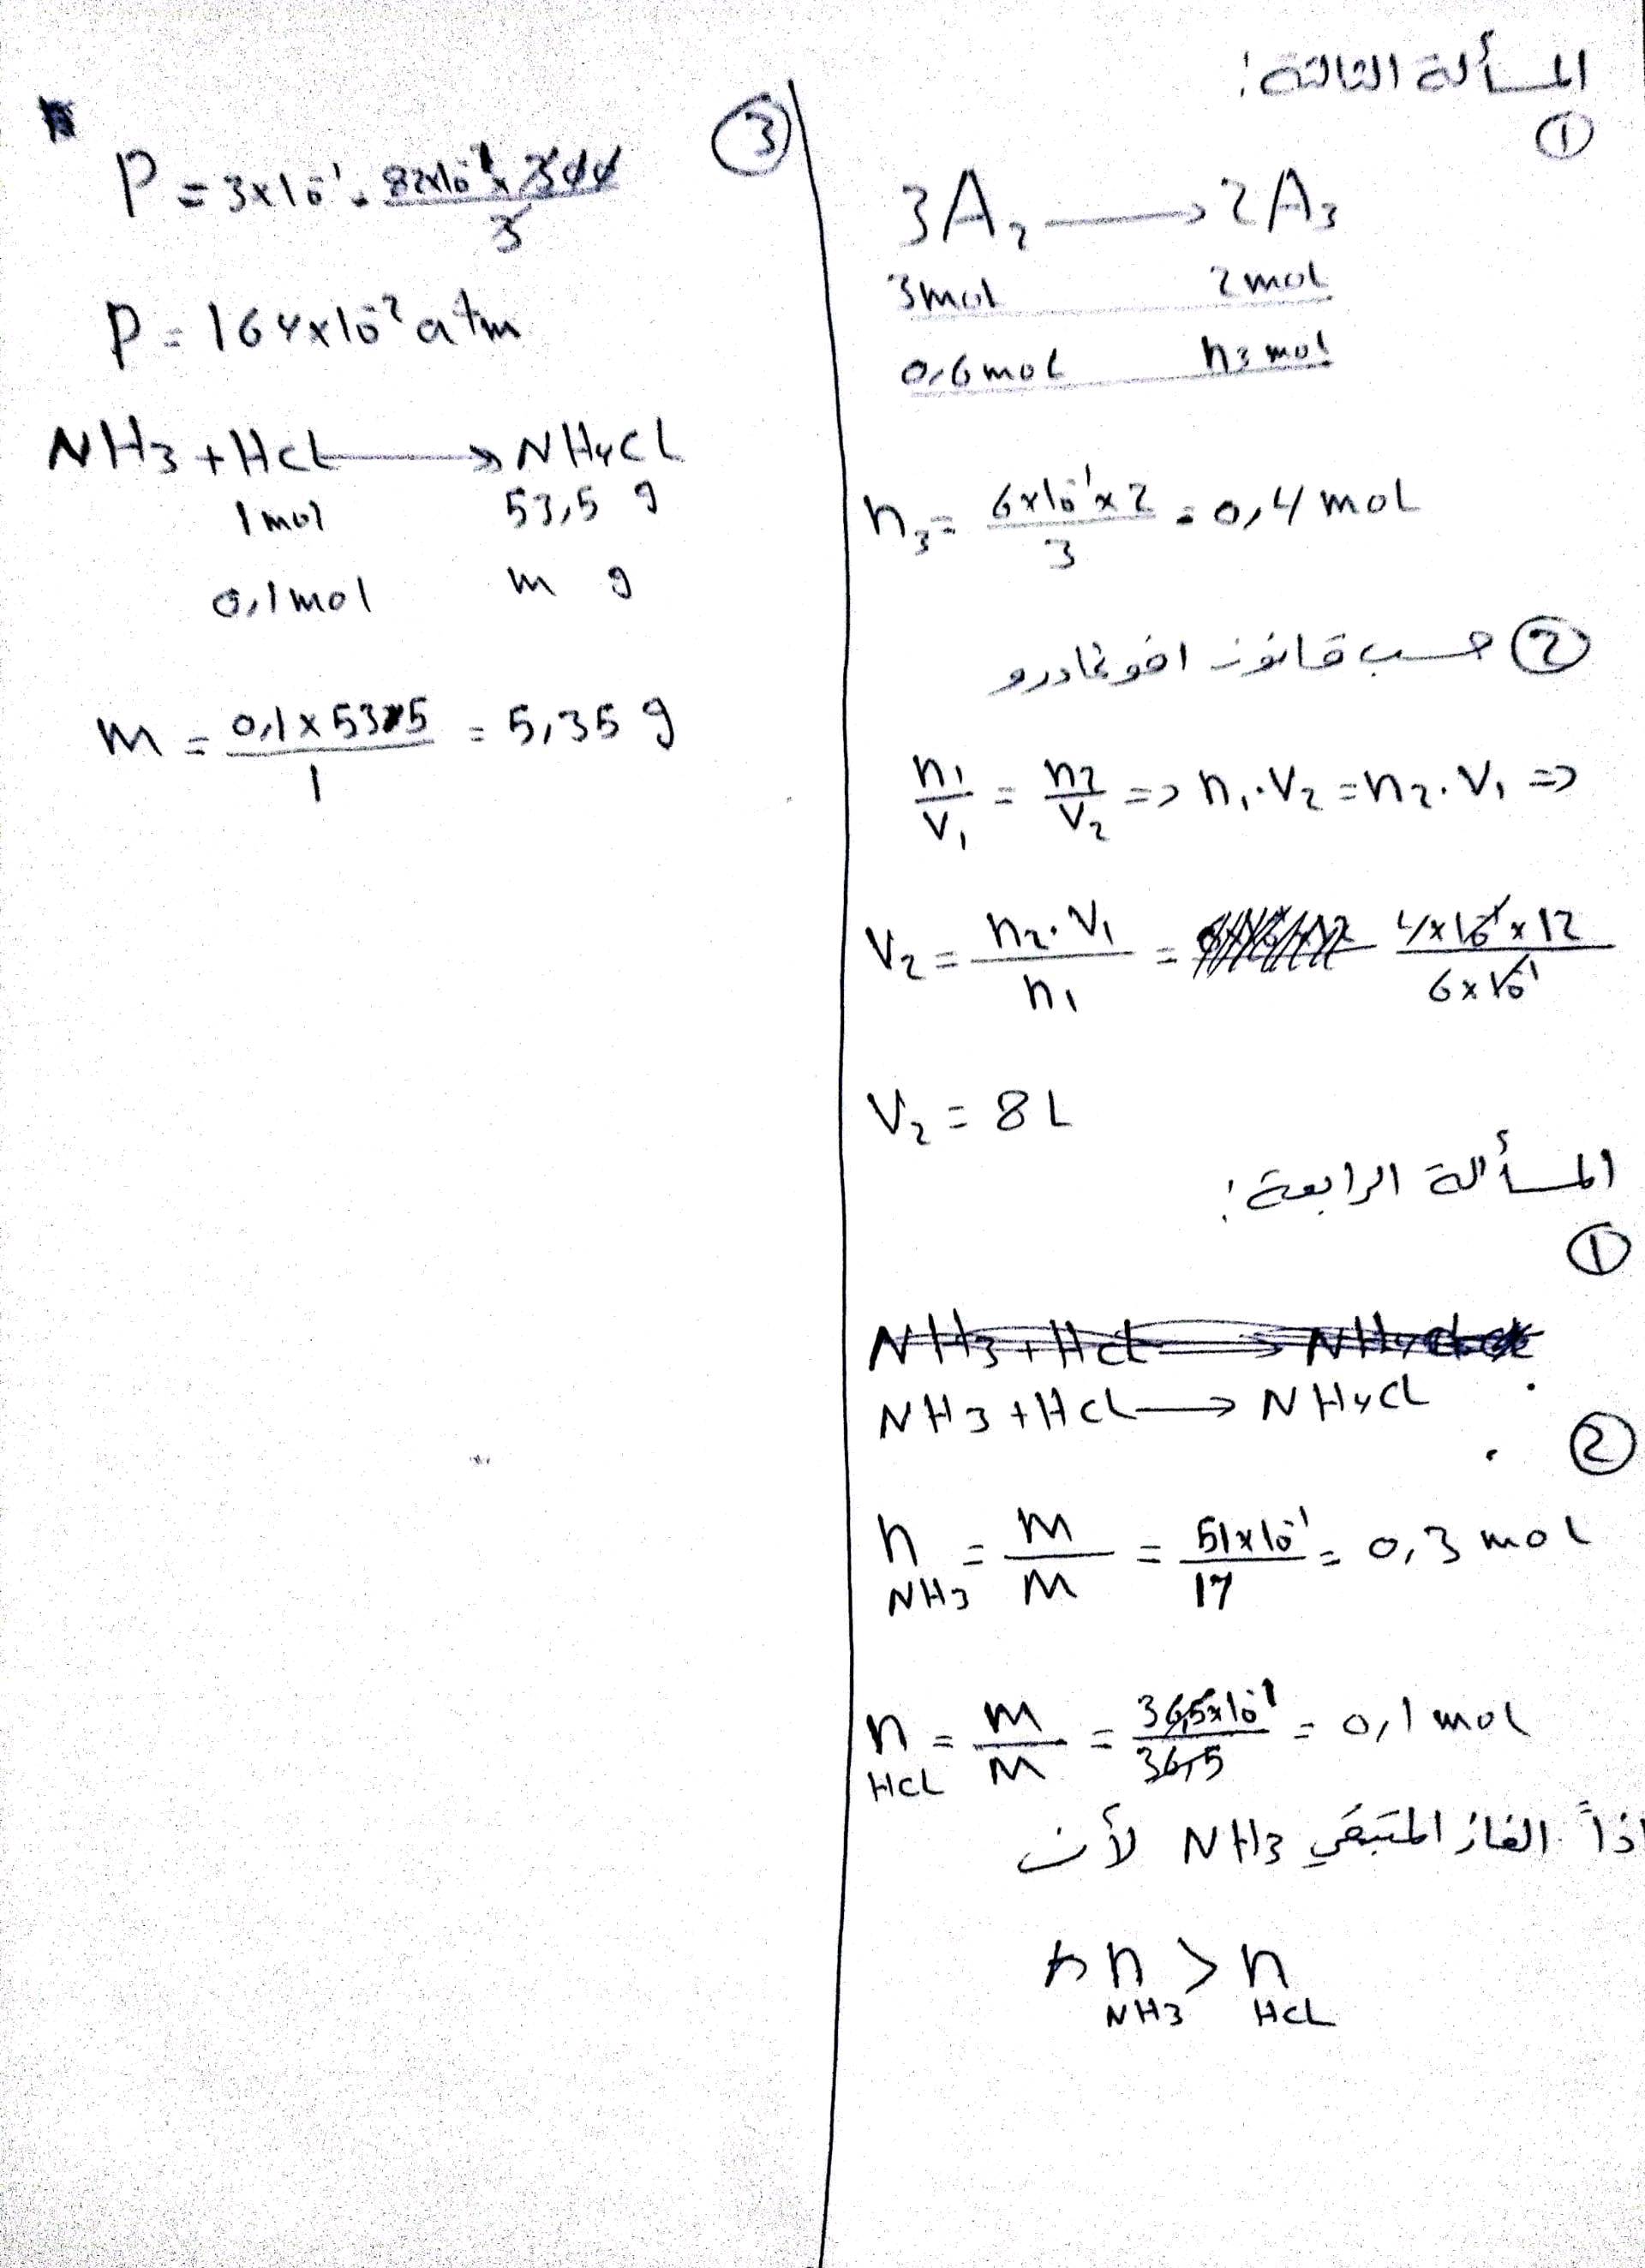 المسألة الثالثة:
①
3A₂ → 2A₃
3mol 2mol
0,6mol n₃ mol
n₃ = 6x10⁻¹x2 / 3 = 0,4 mol
② حسب قانون افوغادرو
n₁/V₁ = n₂/V₂ => n₁.V₂ = n₂.V₁ =>
V₂ = n₂.V₁ / n₁ = 4x10⁻¹x12 / 6x10⁻¹
V₂ = 8 L
المسألة الرابعة:
①
NH3 + HCl → NH4Cl
NH3 + HCl → NH4Cl
②
n NH3 = m / M = 51x10⁻¹ / 17 = 0,3 mol
n HCL = m / M = 36,5x10⁻¹ / 36,5 = 0,1 mol
اذاً الغاز المتبقي NH3 لأن
n NH3 > n HCL
③
P = 3x10⁻¹ . 82x10⁻³ x 300 / 3
P = 164x10⁻² atm
NH3 + HCL → NH4CL
1mol 53,5 g
0,1mol m g
m = 0,1 x 53,5 / 1 = 5,35 g